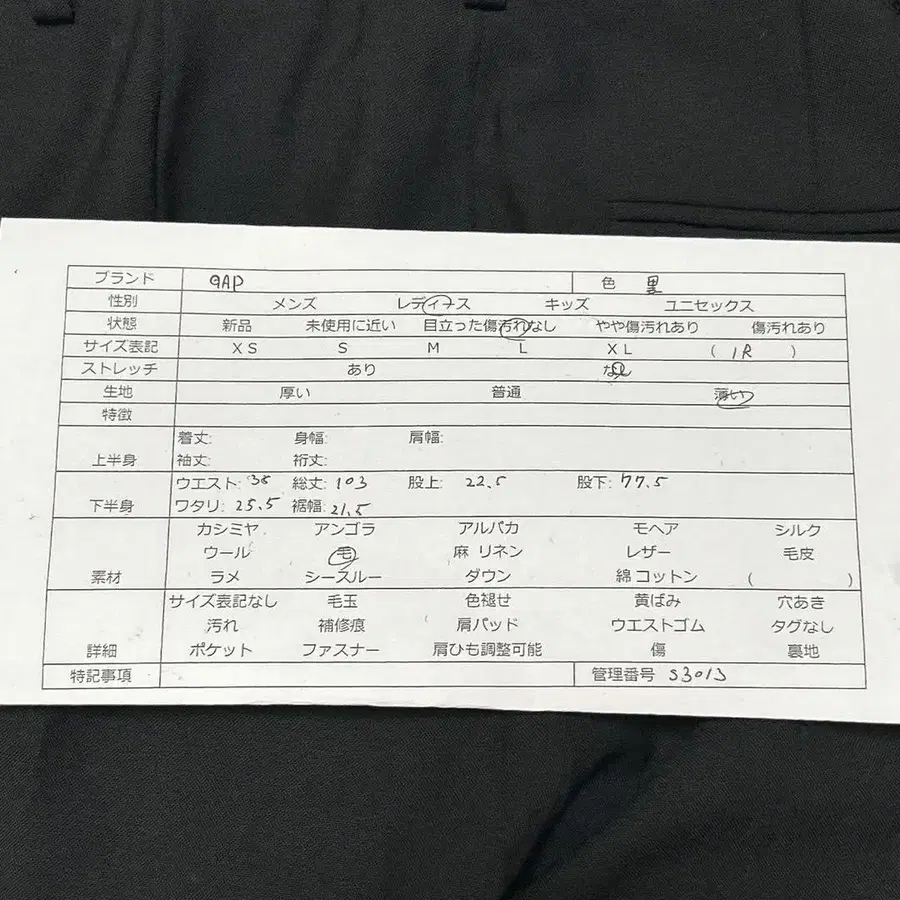 ブランド GAP 色 黒
性別 メンズ レディース キッズ ユニセックス
状態 新品 未使用に近い 目立った傷汚れなし やや傷汚れあり 傷汚れあり
サイズ表記 XS S M L XL ( 1R )
ストレッチ あり なし
生地 厚い 普通 薄い
特徴
着丈: 身幅: 肩幅:
上半身 袖丈: 裄丈:
ウエスト: 38 総丈: 103 股上: 22.5 股下: 77.5
下半身 ワタリ: 25.5 裾幅: 21.5
カシミヤ アンゴラ アルパカ モヘア シルク
ウール 毛 麻 リネン レザー 毛皮
素材 ラメ シースルー ダウン 綿 コットン ( )
サイズ表記なし 毛玉 色褪せ 黄ばみ 穴あき
汚れ 補修痕 肩パッド ウエストゴム タグなし
詳細 ポケット ファスナー 肩ひも調整可能 傷 裏地
特記事項 管理番号 S3013